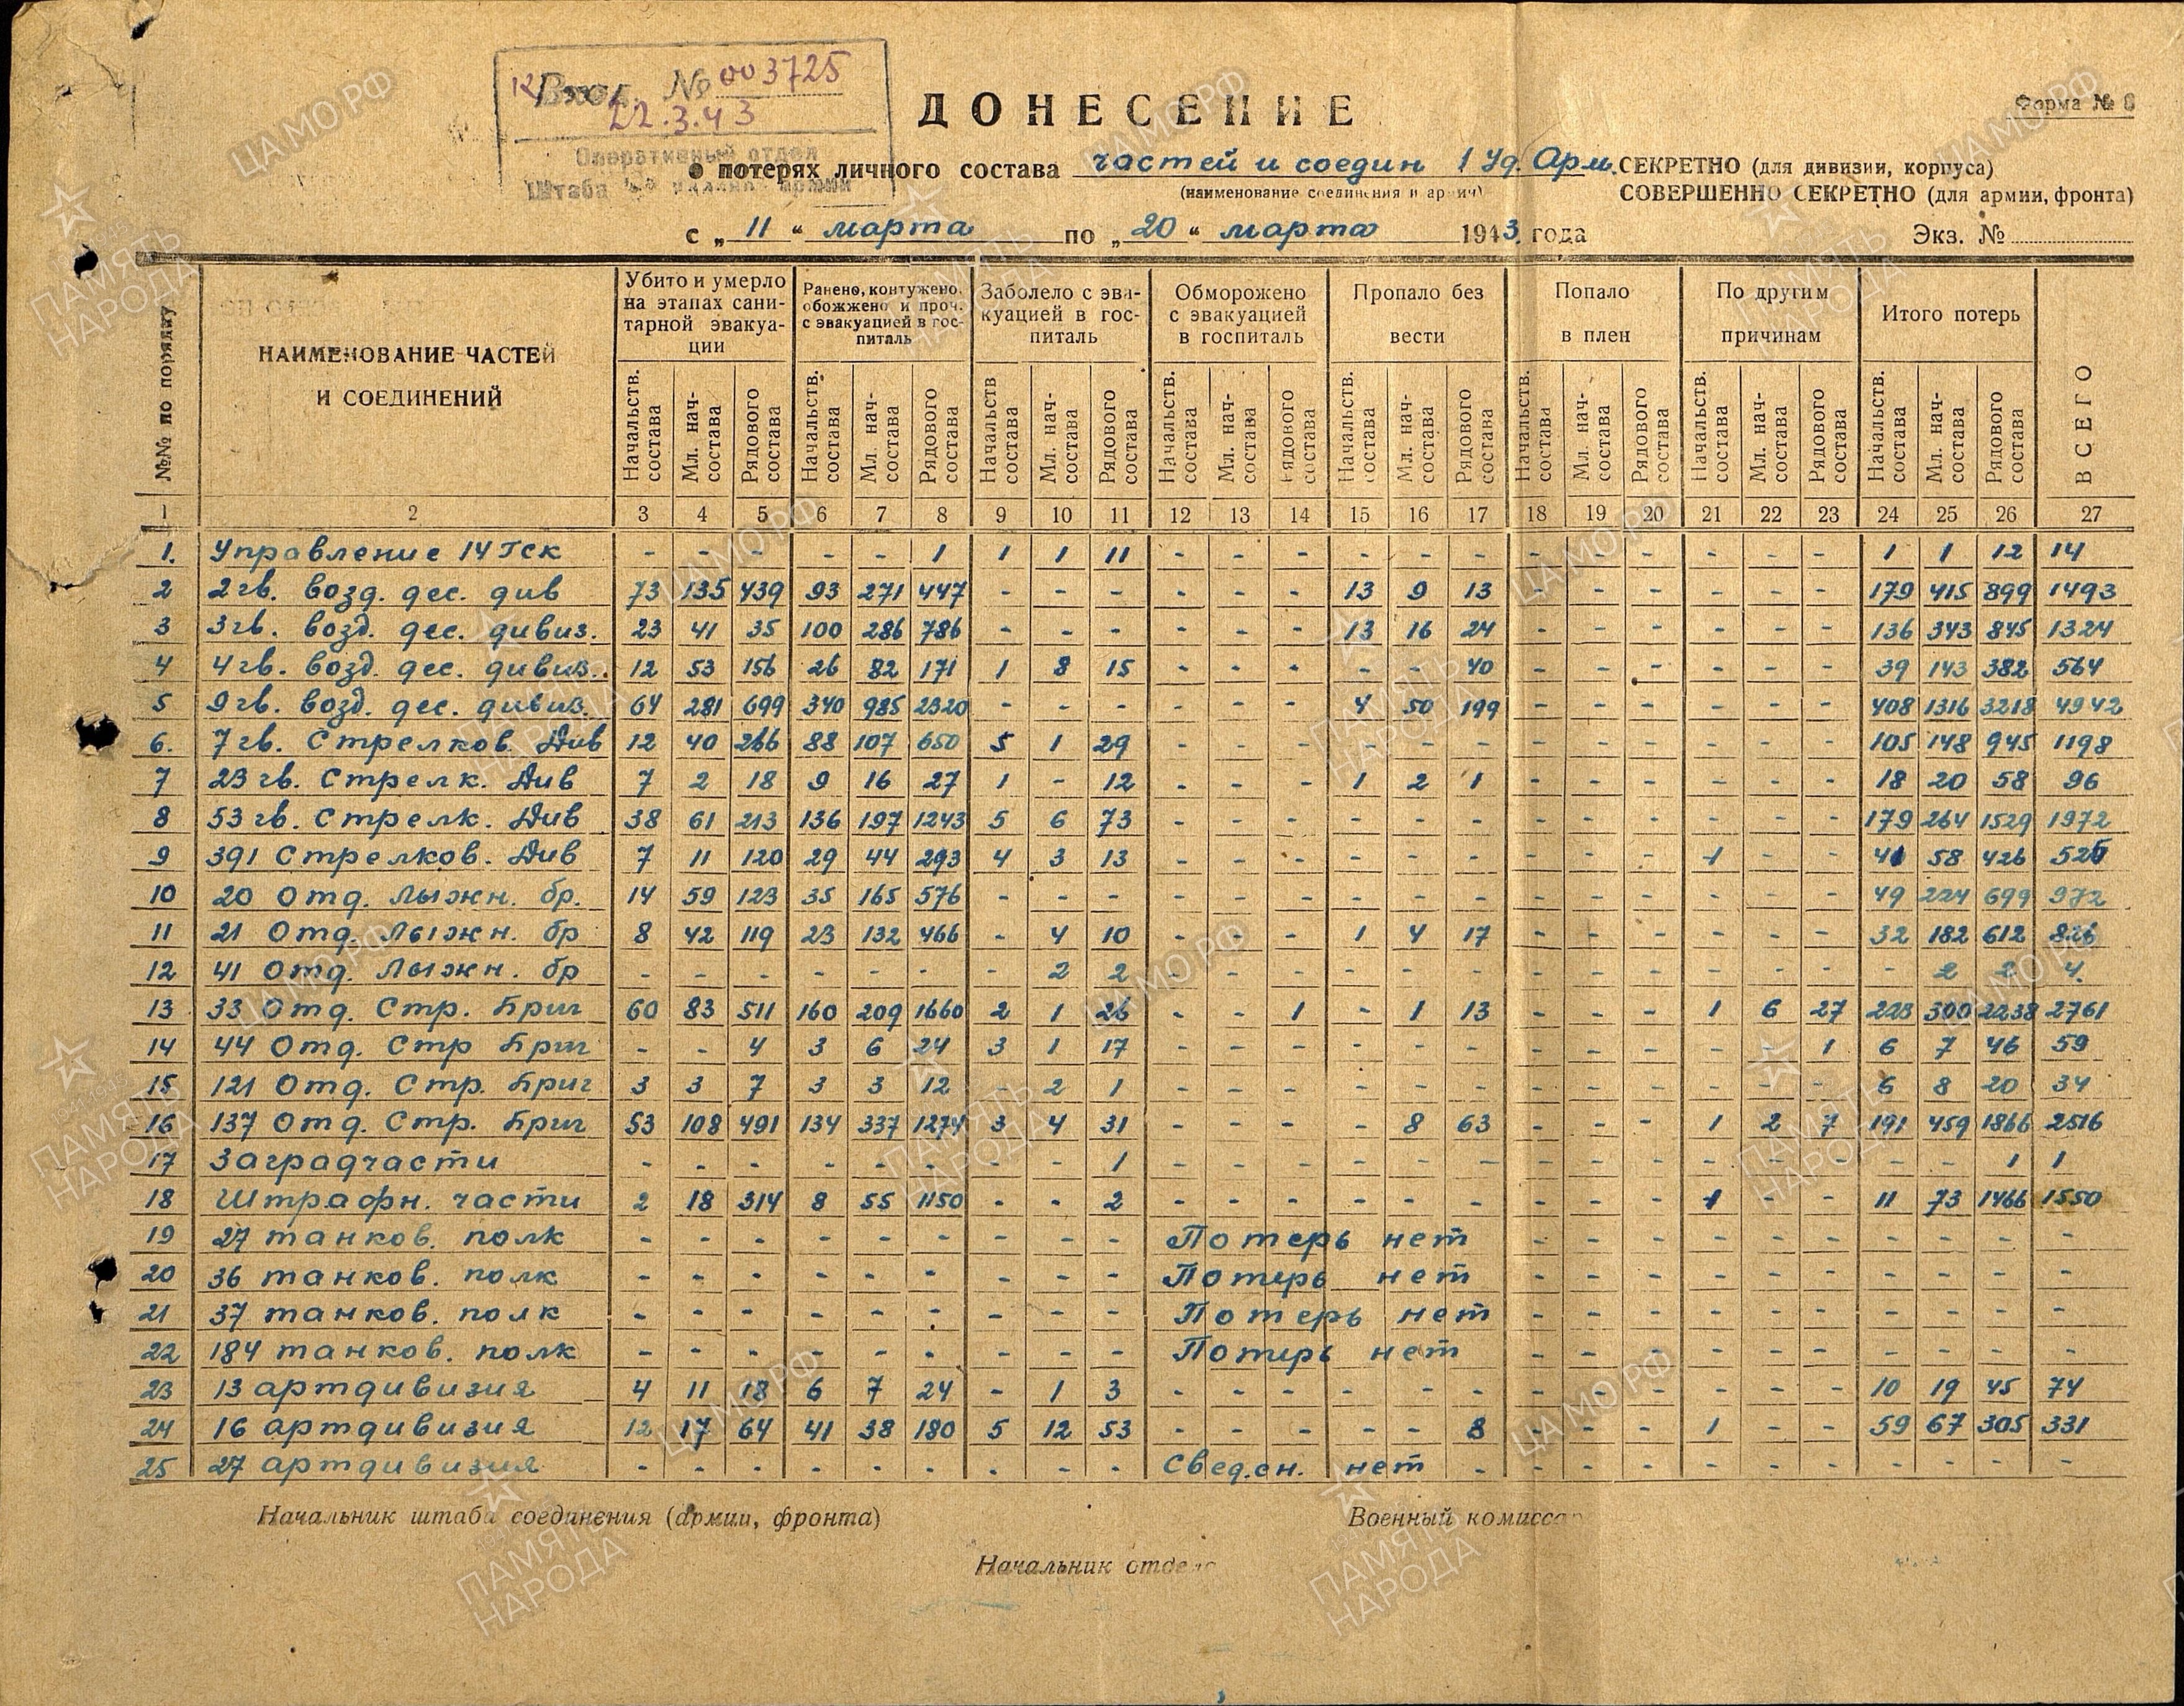 Вход. № 003725
22.3.43
Оперативный отдел
Штаба
ДОНЕСЕНИЕ
Форма № 8
о потерях личного состава частей и соедин 1 Уд. Арм.
(наименование соединения и армии)
СЕКРЕТНО (для дивизии, корпуса)
СОВЕРШЕННО СЕКРЕТНО (для армии, фронта)
с „ 11 “ марта по „ 20 “ марта 1943 года
Экз. №
№№ по порядку
НАИМЕНОВАНИЕ ЧАСТЕЙ И СОЕДИНЕНИЙ
Убито и умерло на этапах сани-тарной эвакуа-ции
Ранено, контужено, обожжено и проч. с эвакуацией в гос-питаль
Заболело с эва-куацией в гос-питаль
Обморожено с эвакуацией в госпиталь
Пропало без вести
Попало в плен
По другим причинам
Итого потерь
ВСЕГО
Начальств. состава Мл. нач-состава Рядового состава Начальств. состава Мл. нач-состава Рядового состава Начальств состава Мл. нач-состава Рядового состава Начальств. состава Мл. нач-состава Рядового состава Начальств. состава Мл. нач-состава Рядового состава Начальств. состава Мл. нач-состава Рядового состава Начальств. состава Мл. нач-состава Рядового состава Начальств. состава Мл. нач-состава Рядового состава
1 2 3 4 5 6 7 8 9 10 11 12 13 14 15 16 17 18 19 20 21 22 23 24 25 26 27
1. Управление 14 Гск - - - - - 1 1 1 11 - - - - - - - - - - - - 1 1 12 14
2 2 гв. возд. дес. див 73 135 439 93 271 447 - - - - - - 13 9 13 - - - - - - 179 415 899 1493
3 3 гв. возд. дес. дивиз. 23 41 35 100 286 786 - - - - - - 13 16 24 - - - - - - 136 343 845 1324
4 4 гв. возд. дес. дивиз. 12 53 156 26 82 171 1 8 15 - - - - - 40 - - - - - - 39 143 382 564
5 9 гв. возд. дес. дивиз. 64 281 699 340 985 2320 - - - - - - 4 50 199 - - - - - - 408 1316 3218 4942
6. 7 гв. Стрелков. Див 12 40 266 88 107 650 5 1 29 - - - - - - - - - - - - 105 148 945 1198
7 23 гв. Стрелк. Див 7 2 18 9 16 27 1 - 12 - - - 1 2 1 - - - - - - 18 20 58 96
8 53 гв. Стрелк. Див 38 61 213 136 197 1243 5 6 73 - - - - - - - - - - - - 179 264 1529 1972
9 391 Стрелков. Див 7 11 120 29 44 293 4 3 13 - - - - - - - - - 1 - - 41 58 426 525
10 20 Отд. Лыжн. бр. 14 59 123 35 165 576 - - - - - - - - - - - - - - - 49 224 699 972
11 21 Отд. Лыжн. бр 8 42 119 23 132 466 - 4 10 - - - 1 4 17 - - - - - - 32 182 612 826
12 41 Отд. Лыжн. бр - - - - - - - 2 2 - - - - - - - - - - - - - 2 2 4
13 33 Отд. Стр. Бриг 60 83 511 160 209 1660 2 1 26 - - 1 - 1 13 - - - 1 6 27 223 300 2238 2761
14 44 Отд. Стр Бриг - - 4 3 6 24 3 1 17 - - - - - - - - - - - 1 6 7 46 59
15 121 Отд. Стр. Бриг 3 3 7 3 3 12 - 2 1 - - - - - - - - - - - - 6 8 20 34
16 137 Отд. Стр. Бриг 53 108 491 134 337 1274 3 4 31 - - - - 8 63 - - - 1 2 7 191 459 1866 2516
17 Заградчасти - - - - - - - - 1 - - - - - - - - - - - - - - 1 1
18 Штрафн. части 2 18 314 8 55 1150 - - 2 - - - - - - - - - 1 - - 11 73 1466 1550
19 27 танков. полк - - - - - - - - - Потерь нет - - - - - - - - - -
20 36 танков. полк - - - - - - - - - Потерь нет - - - - - - - - - -
21 37 танков. полк - - - - - - - - - Потерь нет - - - - - - - - - -
22 184 танков. полк - - - - - - - - - Потерь нет - - - - - - - - - -
23 13 артдивизия 4 11 18 6 7 24 - 1 3 - - - - - - - - - - - - 10 19 45 74
24 16 артдивизия 12 17 64 41 38 180 5 12 53 - - - - - 8 - - - 1 - - 59 67 305 331
25 27 артдивизия - - - - - - - - - Сведен. нет - - - - - - - - - - -
Начальник штаба соединения (армии, фронта)
Военный комиссар
Начальник отдела
ЦАМО РФ
ПАМЯТЬ НАРОДА